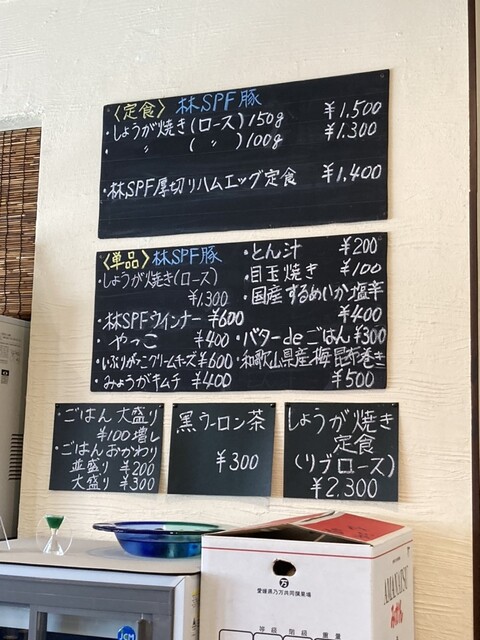 〈定食〉 林SPF豚
・しょうが焼き(ロース)150g ¥1,500
・ 〃 ( 〃 )100g ¥1,300
・林SPF厚切りハムエッグ定食 ¥1,400
〈単品〉林SPF豚
・しょうが焼き(ロース)
¥1,300
・林SPFウインナー ¥600
・やっこ ¥400
・いぶりがっこクリームチーズ ¥600
・みょうがキムチ ¥400
・とん汁 ¥200
・目玉焼き ¥100
・国産するめいか塩辛
¥400
・バターdeごはん ¥300
・和歌山県産梅昆布巻き
¥500
・ごはん大盛り
¥100増し
・ごはんおかわり
並盛り ¥200
大盛り ¥300
黒ウーロン茶
¥300
しょうが焼き
定食
(リブロース)
¥2,300
万
愛媛県乃万共同撰果場
等級 階級
AMANATSU
JCM